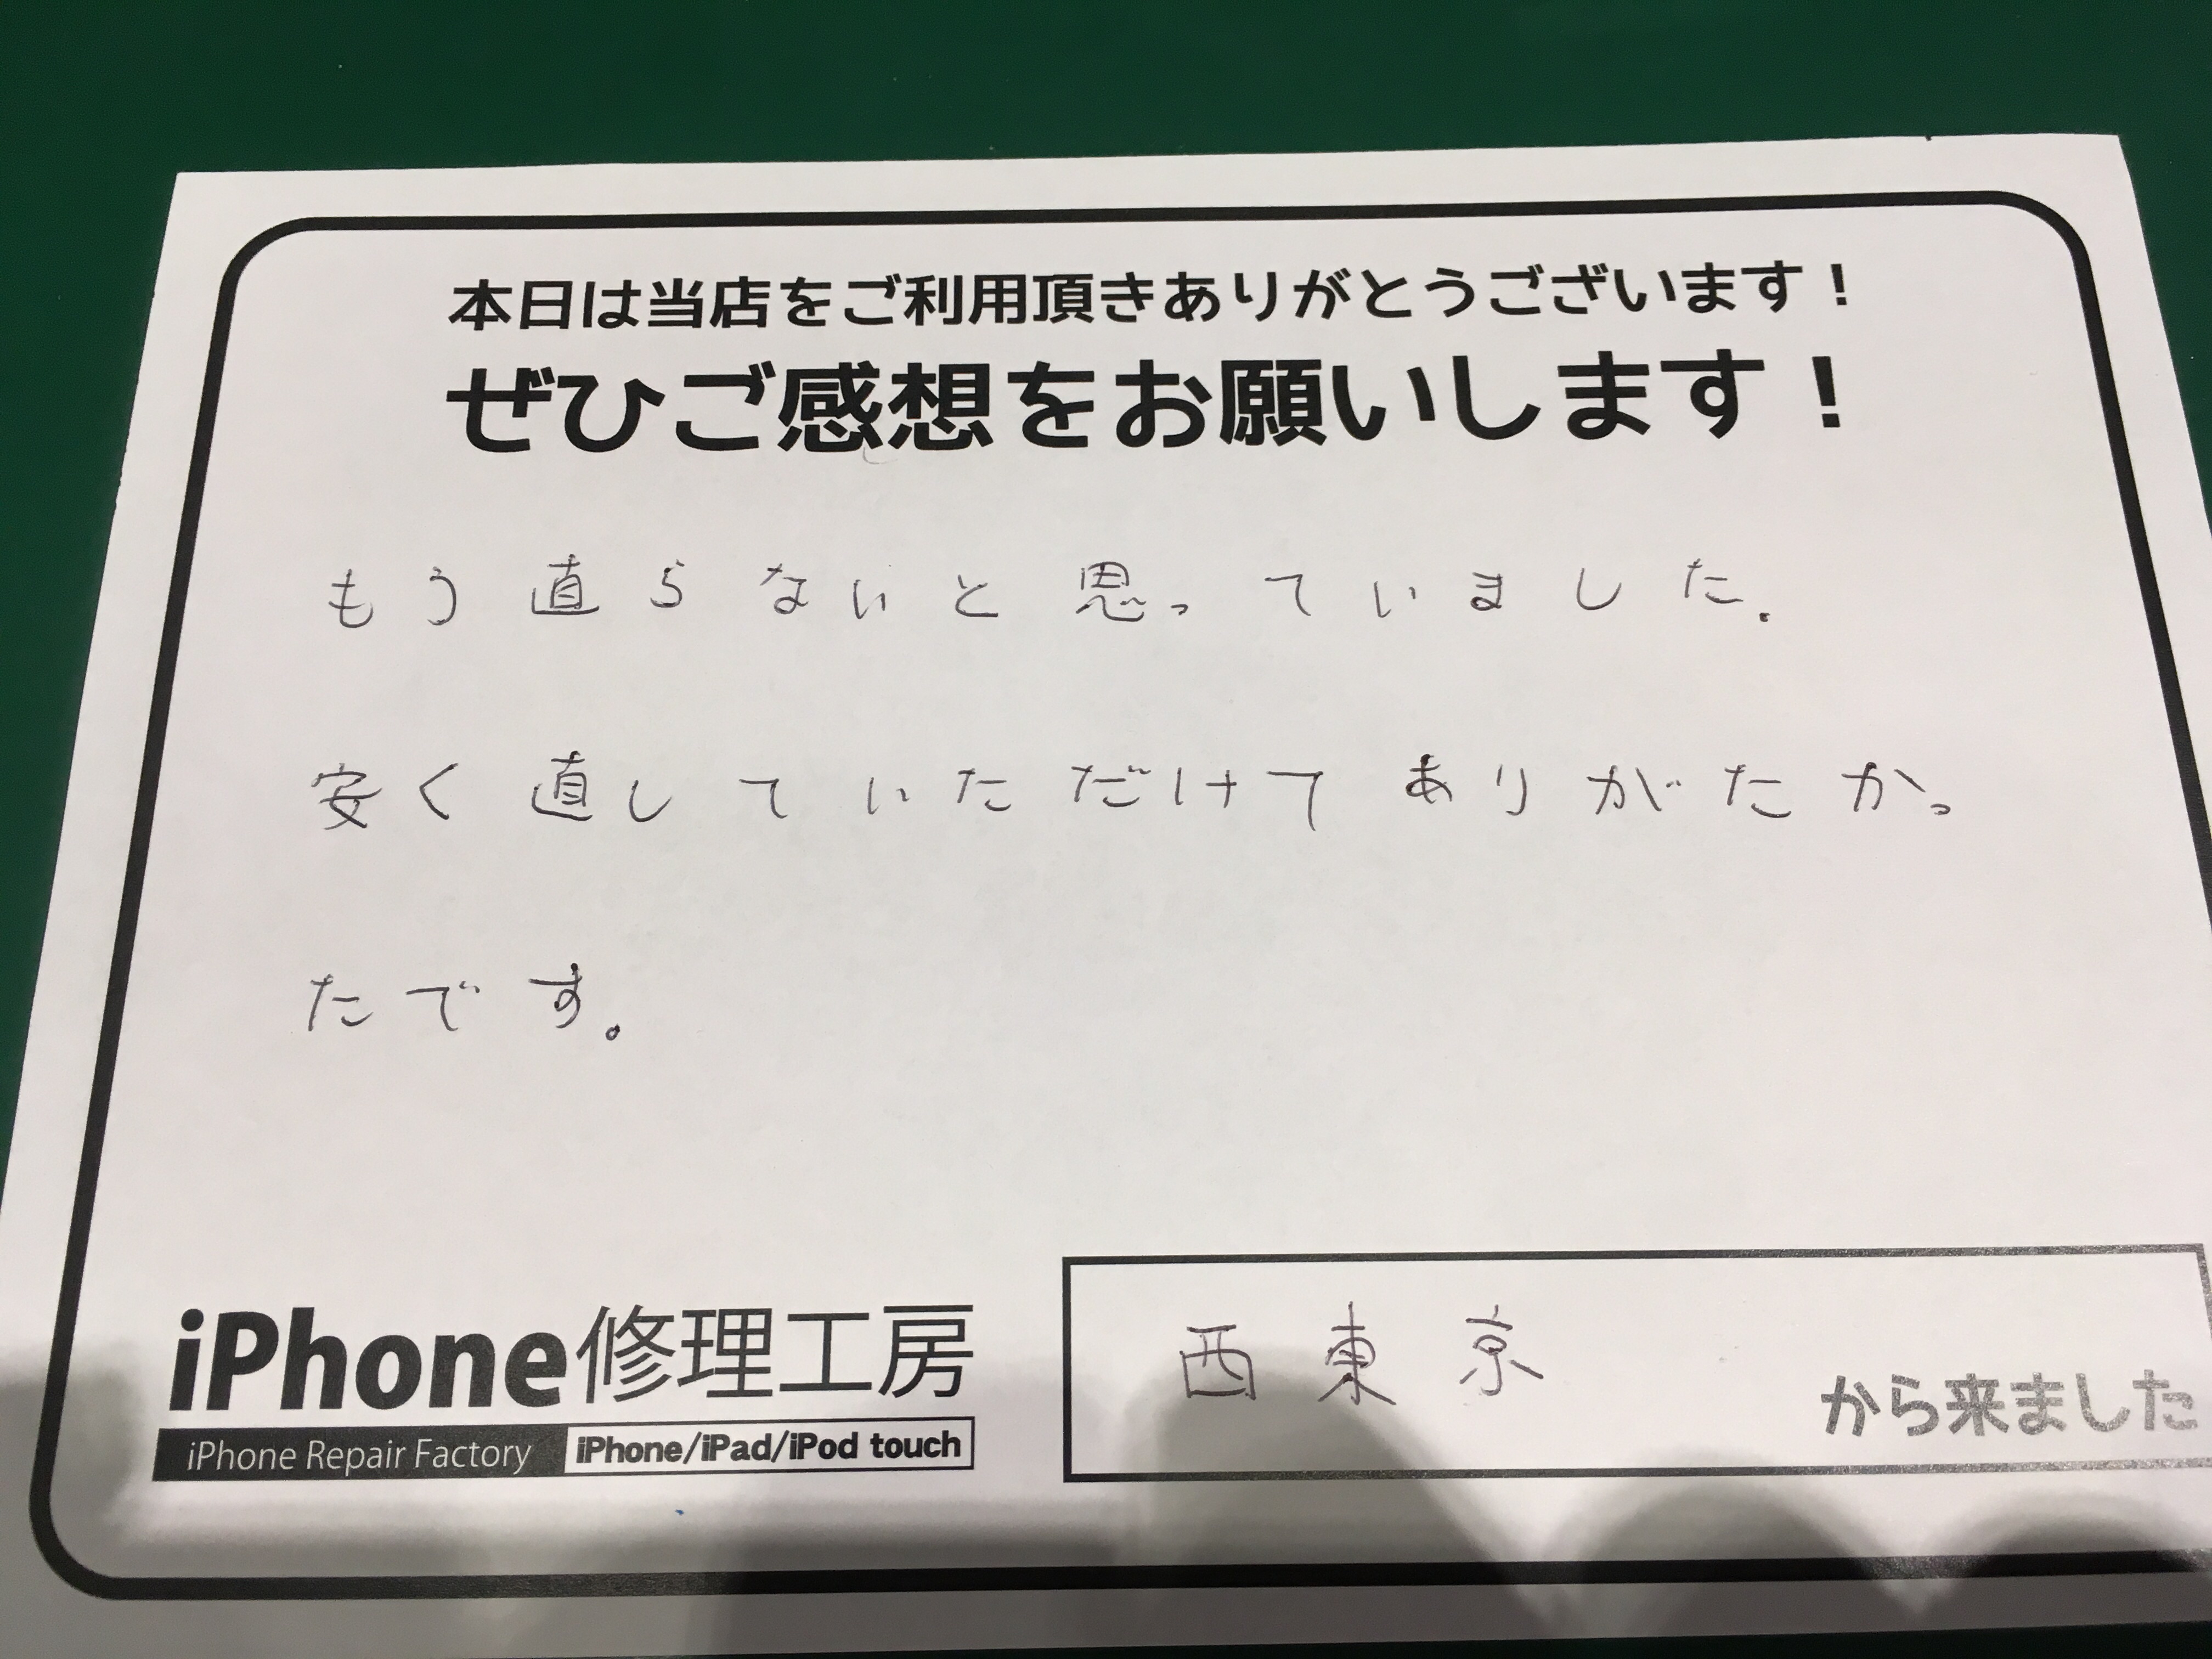 本日は当店をご利用頂きありがとうございます！
ぜひご感想をお願いします！
もう直らないと思っていました.
安く直していただけてありがたかっ
たです。
iPhone修理工房
iPhone Repair Factory iPhone/iPad/iPod touch
西東京
から来ました